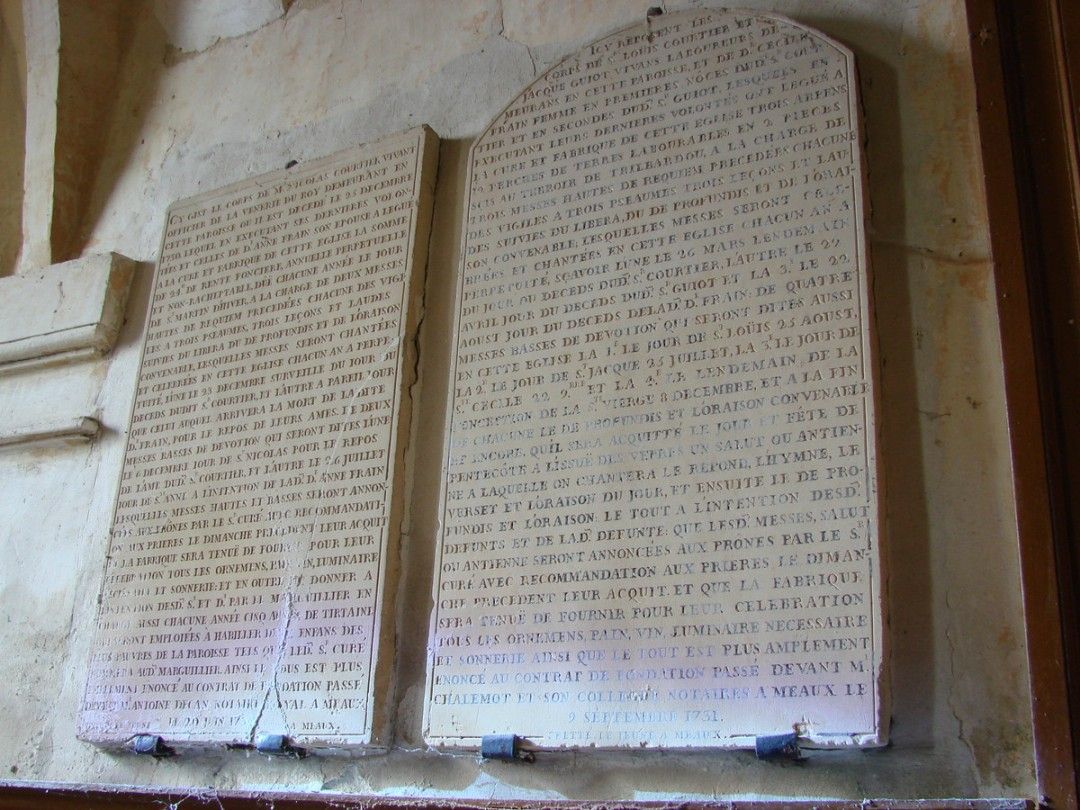 CY GIST LE CORPS DE Mr. NICOLAS COURTIER VIVANT
OFFICIER DE LA VENERIE DU ROY DEMEURANT EN
CETTE PAROISSE OU IL EST DECEDÉ LE 25 DECEMBRE
1730. LEQUEL EN EXECUTANT SES DERNIERES VOLON
TÉS ET CELLES DE D. ANNE FRAIN SON EPOUSE A LEGUÉ
A LA CURE ET FABRIQUE DE CETTE EGLISE LA SOMME
DE 24# DE RENTE FONCIERE, ANNUELLE PERPETUELLE
ET NON-RACHEPTABLE, DÜE CHACUNE ANNÉE LE JOUR
DE St. MARTIN D'HIVER, A LA CHARGE DE DEUX MESSES
HAUTES DE REQUIEM PRECEDÉES CHACUNE DES VIGI
LES A TROIS PSEAUMES, TROIS LEÇONS ET LAUDES
SUIVIES DU LIBERA DU DE PROFUNDIS ET DE L'ORAISON
CONVENABLE, LESQUELLES MESSES SERONT CHANTÉES
ET CELEBRÉES EN CETTE EGLISE CHACUN AN A PERPE
TUITÉ, L'UNE LE 23 DECEMBRE SURVEILLE DU JOUR DU
DECEDS DUDIT Sr. COURTIER, ET L'AUTRE A PAREIL JOUR
QUE CELUI AUQUEL ARRIVERA LA MORT DE LA DITE
D. FRAIN, POUR LE REPOS DE LEURS AMES. DE DEUX
MESSES BASSES DE DEVOTION QUI SERONT DITES L'UNE
LE 6 DECEMBRE JOUR DE St. NICOLAS POUR LE REPOS
DE L'AME DUD. Sr. COURTIER, ET L'AUTRE LE 26 JUILLET
JOUR DE Ste. ANNE A L'INTENTION DE LAD. D. ANNE FRAIN
LESQUELLES MESSES HAUTES ET BASSES SERONT ANNON
CÉES AUX PRÔNES PAR LE Sr. CURÉ AVEC RECOMMANDATI
ON AUX PRIERES LE DIMANCHE PRECEDENT LEUR ACQUIT
ET LA FABRIQUE SERA TENUE DE FOURNIR POUR LEUR
CELEBRATION TOUS LES ORNEMENS, PAIN, VIN, LUMINAIRE
ET SONNERIE: ET EN OUTRE DE DONNER A
L'INTENTION DESD. Sr. ET D. PAR LE MARGUILLIER EN
AUSSI CHACUNE ANNÉE CINQ AUNES DE TIRTAINE
QUI SERONT EMPLOIÉES A HABILLER DEUX ENFANS DES
PLUS PAUVRES DE LA PAROISSE TELS QUE LED. Sr. CURÉ
AUD. MARGUILLIER. AINSI LE TOUS EST PLUS
ENONCÉ AU CONTRAT DE FONDATION PASSÉ
DEVANT ANTOINE DECAN NOTAIRE ROYAL A MEAUX
LE 20
A MEAUX.
ICY REPOSENT LES
CORPS DE Sr. LOUIS COURTIER ET
JACQUE GUIOT, VIVANS LABOUREURS DE
MEURANS EN CETTE PAROISSE, ET DE D. CECILE
FRAIN FEMME EN PREMIERES NOCES DUD. Sr. COUR
TIER ET EN SECONDES DUD. Sr. GUIOT, LESQUELS EN
EXECUTANT LEURS DERNIERES VOLONTÉS ONT LEGUÉ A
LA CURE ET FABRIQUE DE CETTE EGLISE TROIS ARPENS
12 PERCHES DE TERRES LABOURABLES EN 2 PIECES
SCIS AU TERROIR DE TRILBARDOU, A LA CHARGE DE
TROIS MESSES HAUTES DE REQUIEM PRECEDÉES CHACUNE
DES VIGILES A TROIS PSEAUMES TROIS LEÇONS ET LAU
DES SUIVIES DU LIBERA, DU DE PROFUNDIS ET DE L'ORAI
SON CONVENABLE, LESQUELLES MESSES SERONT CELE
BRÉES ET CHANTÉES EN CETTE EGLISE CHACUN AN A
PERPETUITÉ, SÇAVOIR L'UNE LE 26 MARS LENDEMAIN
DU JOUR DU DECEDS DUD. Sr. COURTIER, L'AUTRE LE 22
AVRIL JOUR DU DECEDS DUD. Sr. GUIOT ET LA 3e. LE 22
AOUST JOUR DU DECEDS DELAD. D. FRAIN: DE QUATRE
MESSES BASSES DE DEVOTION QUI SERONT DITES AUSSI
EN CETTE EGLISE LA 1e. LE JOUR DE St. LOÜIS 25 AOUST,
LA 2e. LE JOUR DE St. JACQUE 25 JUILLET, LA 3e. LE JOUR DE
Ste. CECILE 22 9bre. ET LA 4e. LE LENDEMAIN, DE LA
CONCEPTION DE LA Ste. VIERGE 8 DECEMBRE, ET A LA FIN
DE CHACUNE LE DE PROFUNDIS ET L'ORAISON CONVENABLE
ET ENCORE, QU'IL SERA ACQUITTÉ LE JOUR ET FÊTE DE
PENTECÔTE A L'ISSUE DES VEPRES UN SALUT OU ANTIEN
NE A LAQUELLE ON CHANTERA LE REPOND, L'HYMNE, LE
VERSET ET L'ORAISON DU JOUR, ET ENSUITE LE DE PRO
FUNDIS ET L'ORAISON: LE TOUT A L'INTENTION DESD.
DEFUNTS ET DE LAD. DEFUNTE: QUE LESD. MESSES, SALUT
OU ANTIENNE SERONT ANNONCÉES AUX PRONES PAR LE Sr.
CURÉ AVEC RECOMMANDATION AUX PRIERES LE DIMAN-
CHE PRECEDENT LEUR ACQUIT. ET QUE LA FABRIQUE
SERA TENUE DE FOURNIR POUR LEUR CELEBRATION
TOUS LES ORNEMENS, PAIN, VIN, LUMINAIRE NECESSAIRE
ET SONNERIE AINSI QUE LE TOUT EST PLUS AMPLEMENT
ENONCÉ AU CONTRAT DE FONDATION PASSÉ DEVANT M.
CHALEMOT ET SON COLLEGUE NOTAIRES A MEAUX LE
9 SEPTEMBRE 1731.
LE JEUNE A MEAUX.